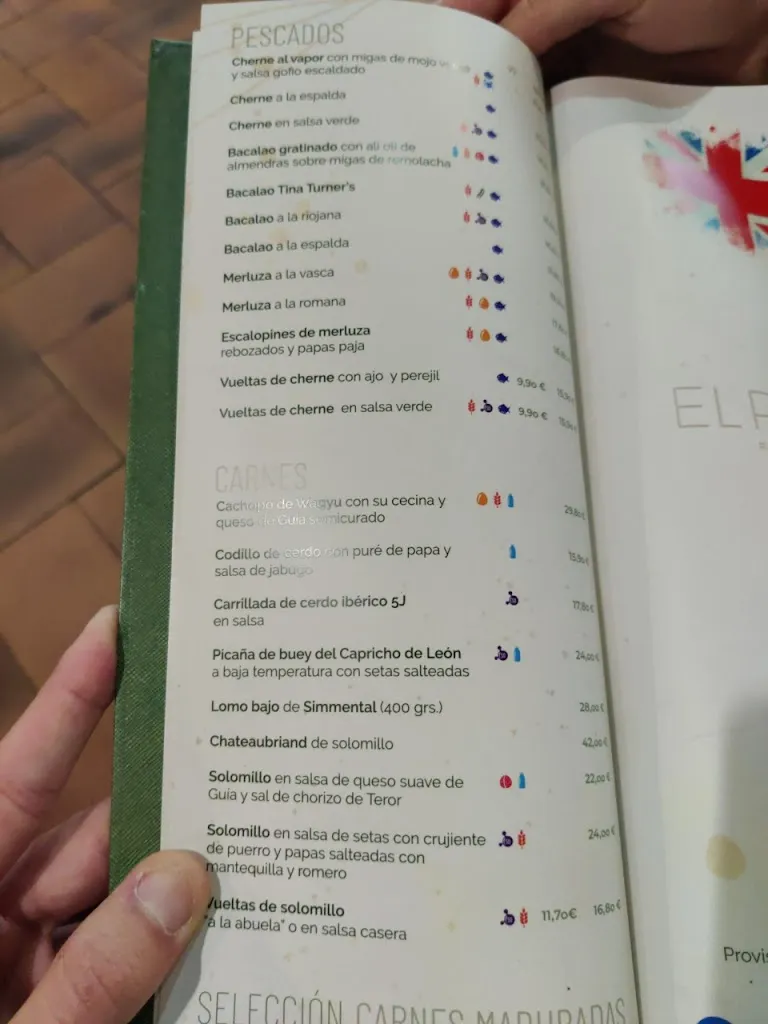 PESCADOS
Cherne al vapor con migas de mojo
y salsa gofio escaldado
Cherne a la espalda
Cherne en salsa verde
Bacalao gratinado con ali oli de
almendras sobre migas de remolacha
Bacalao Tina Turner's
Bacalao a la riojana
Bacalao a la espalda
Merluza a la vasca
Merluza a la romana
Escalopines de merluza
rebozados y papas paja
Vueltas de cherne con ajo y perejil 9,90 €
Vueltas de cherne en salsa verde 9,90 €
CARNES
Cachopo de Wagyu con su cecina y
queso de Guía semicurado 29,80 €
Codillo de cerdo con puré de papa y
salsa de jabugo 15,90 €
Carrillada de cerdo ibérico 5J 17,80 €
en salsa
Picaña de buey del Capricho de León 24,00 €
a baja temperatura con setas salteadas
Lomo bajo de Simmental (400 grs.) 28,00 €
Chateaubriand de solomillo 42,00 €
Solomillo en salsa de queso suave de 22,00 €
Guía y sal de chorizo de Teror
Solomillo en salsa de setas con crujiente 24,00 €
de puerro y papas salteadas con
mantequilla y romero
Vueltas de solomillo 11,70€ 16,80 €
"a la abuela" o en salsa casera
SELECCIÓN CARNES MADURADAS
EL
Provis